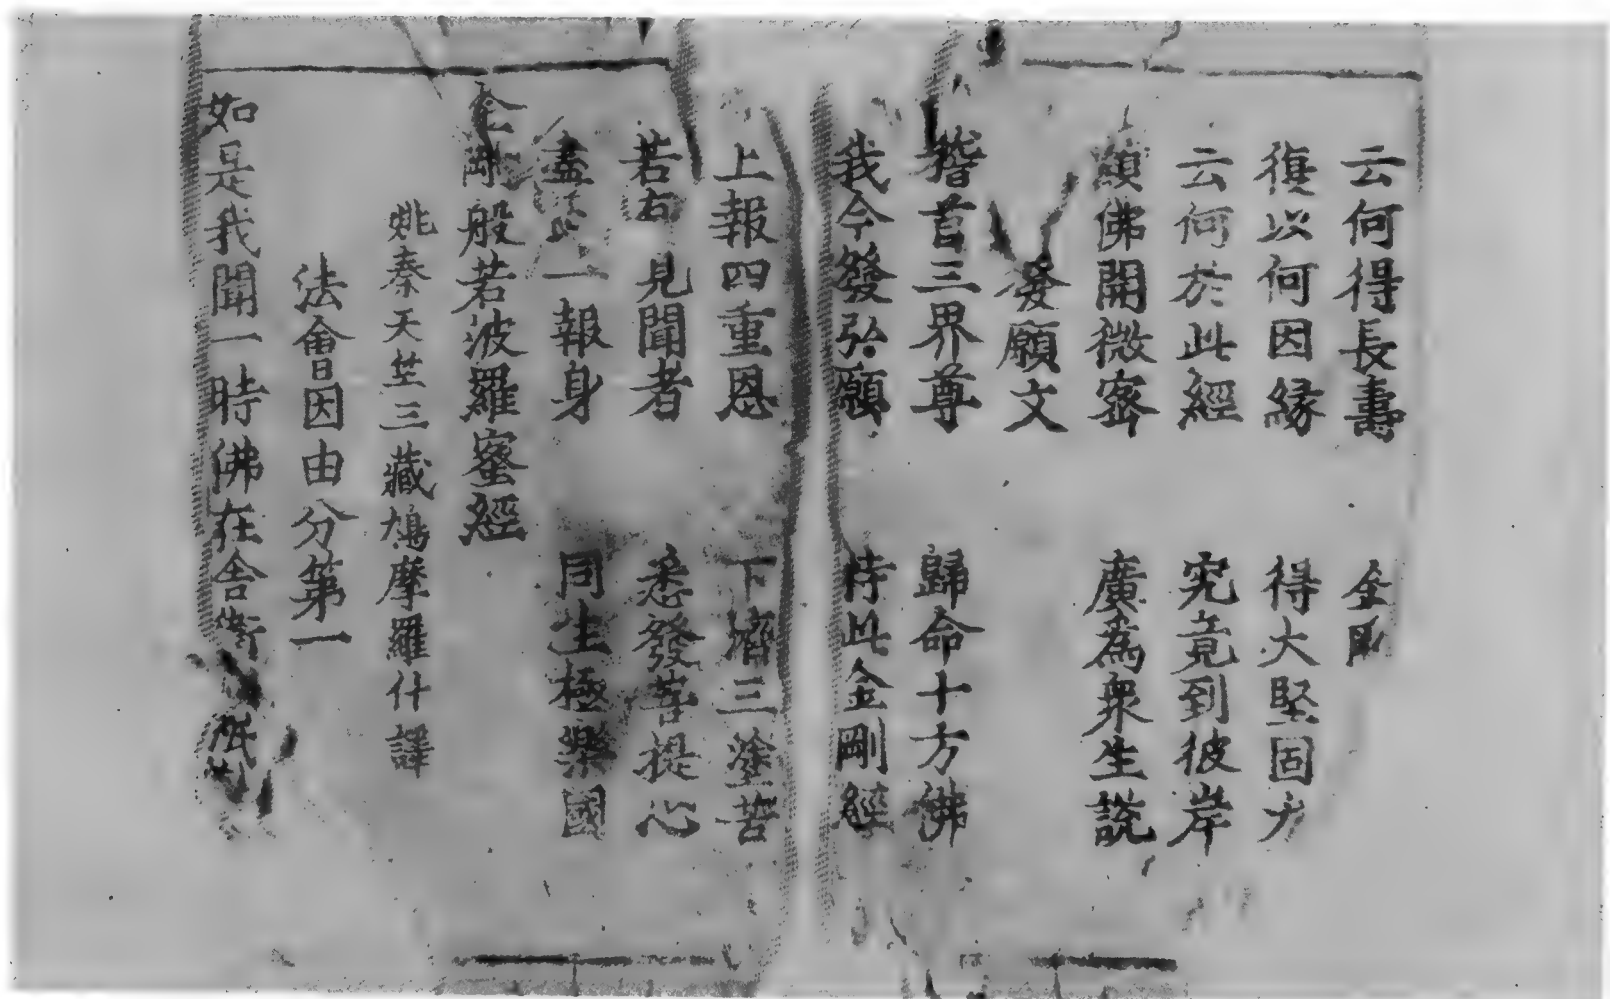 云何得長壽 金剛
復以何因緣 得大堅固力
云何於此經 究竟到彼岸
願佛開微密 廣為眾生説
發願文
稽首三界尊 歸命十方佛
我今發弘願 持此金剛經
上報四重恩 下濟三塗苦
若有見聞者 悉發菩提心
盡此一報身 同生極樂國
金剛般若波羅蜜經
姚秦天竺三藏鳩摩羅什譯
法會因由分第一
如是我聞一時佛在舍衛祇樹